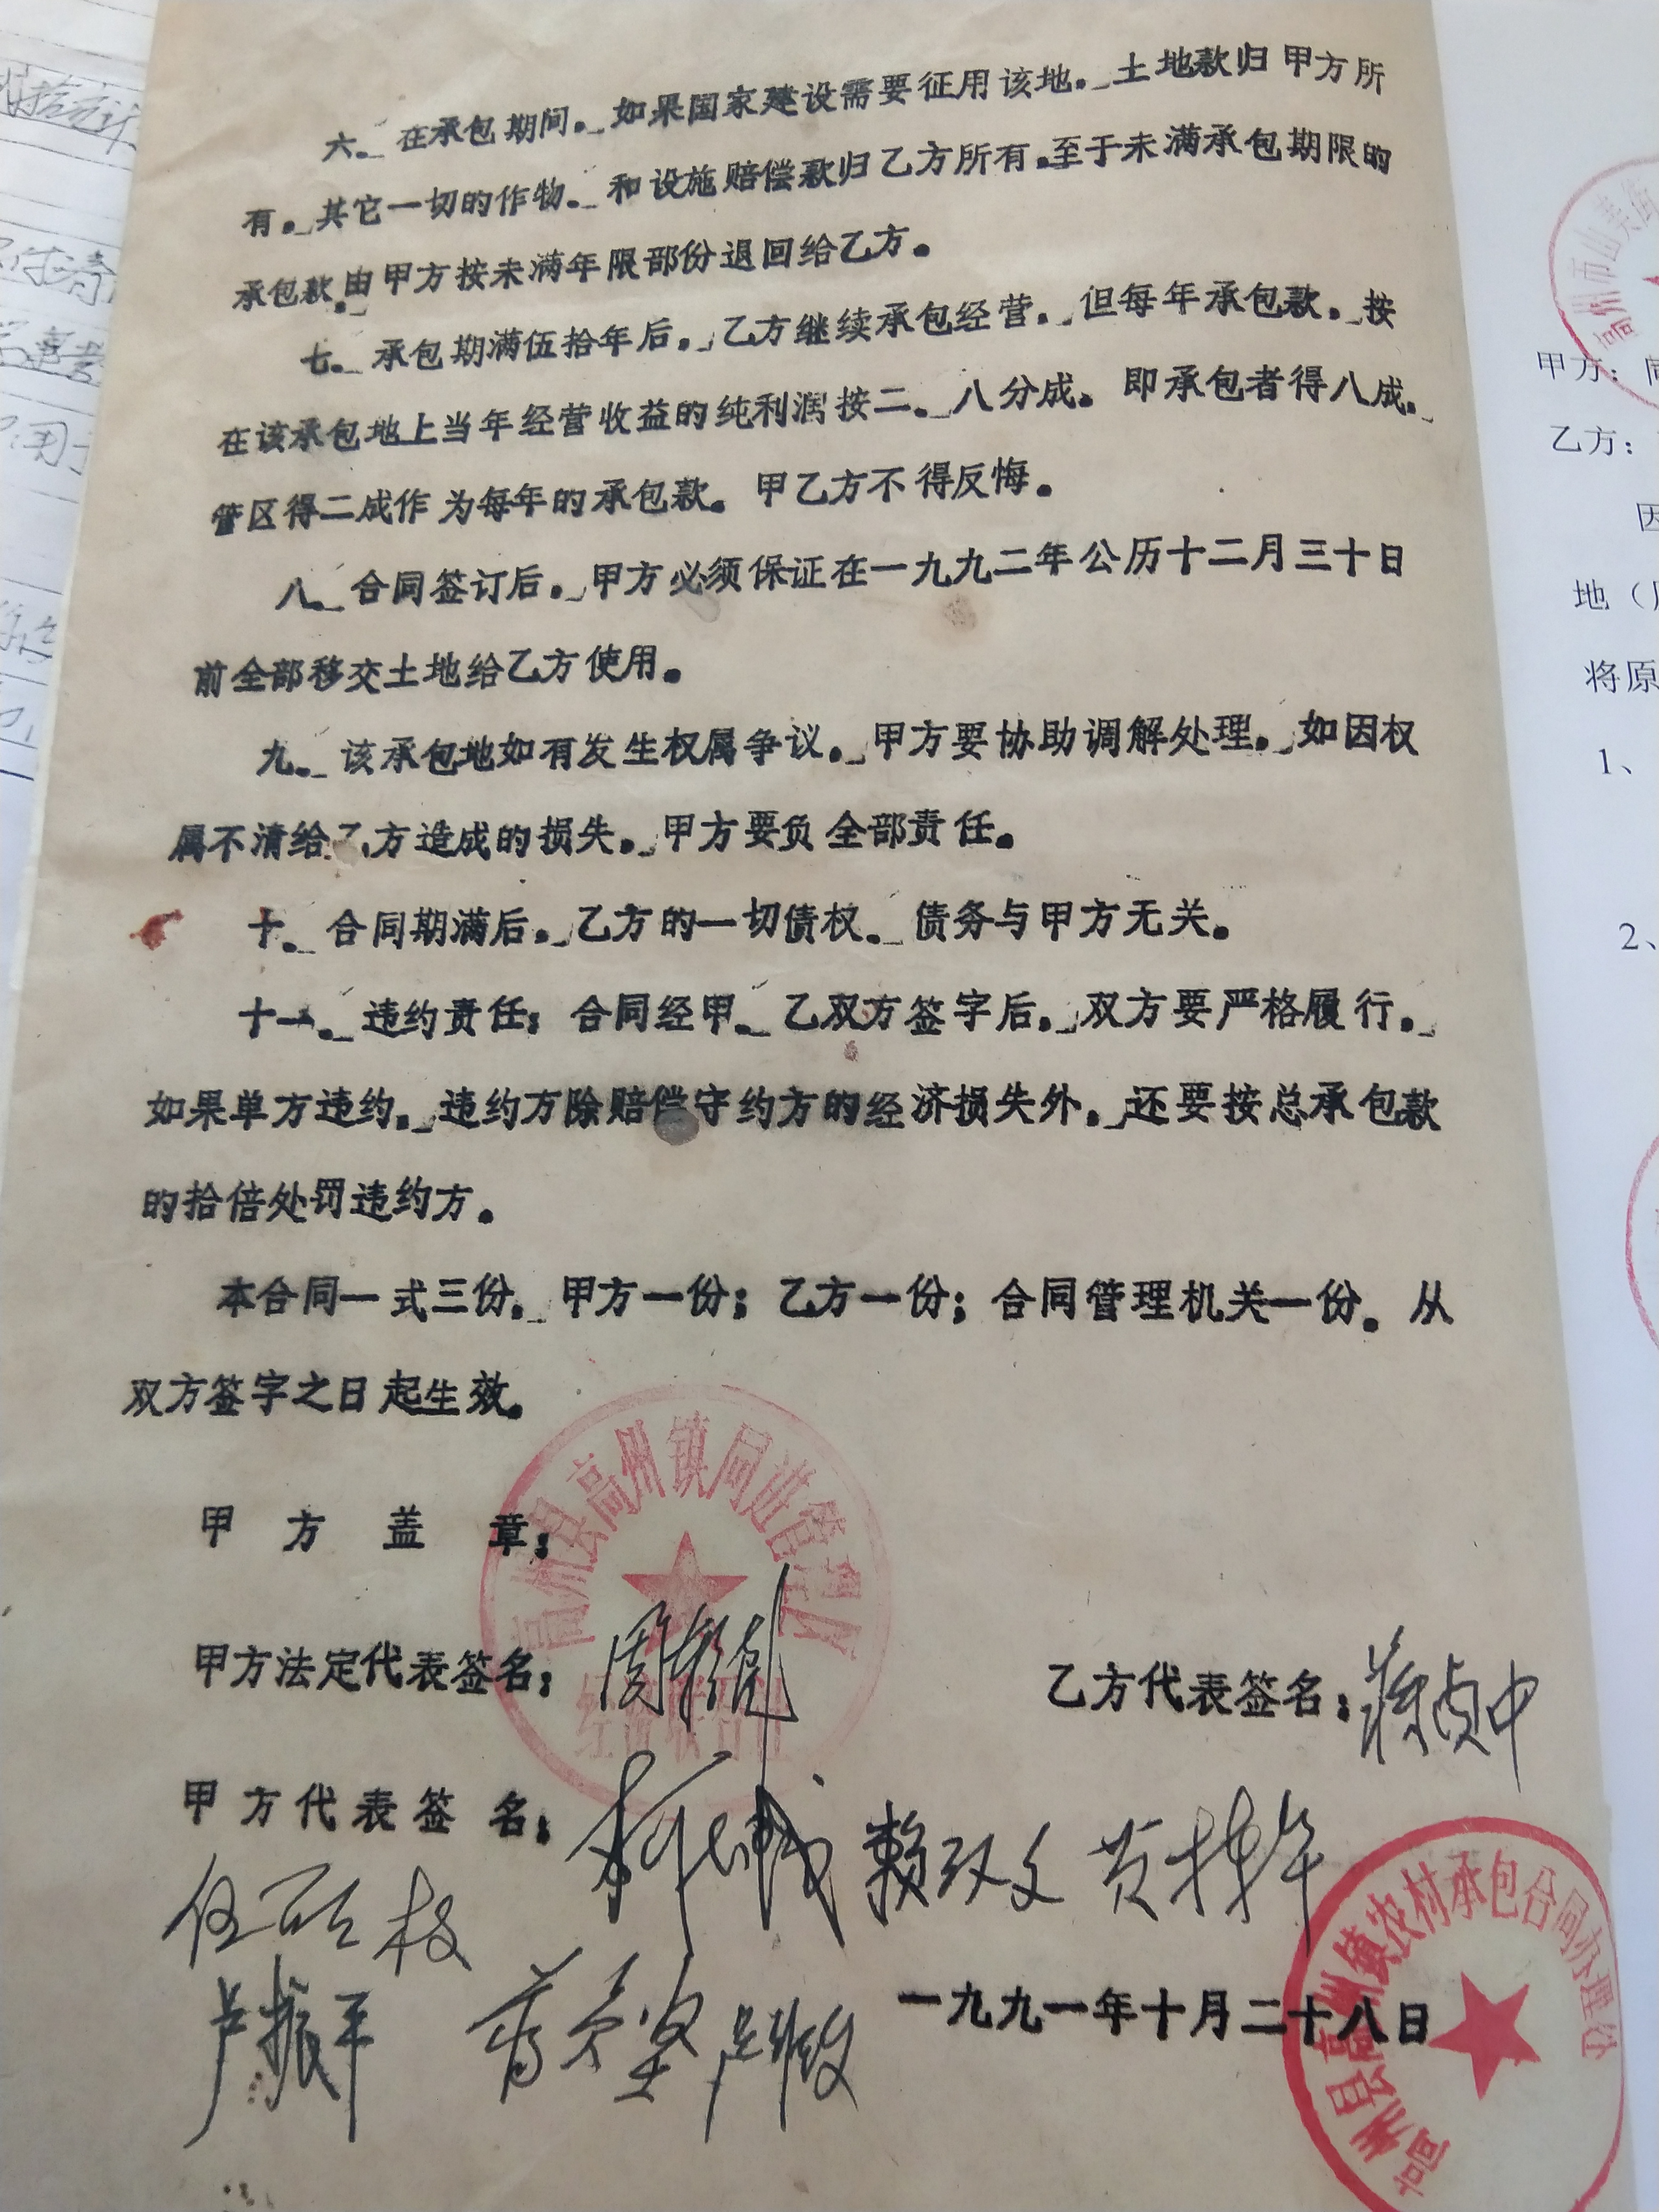 六、在承包期间，如果国家建设需要征用该地，土地款归甲方所
有，其它一切的作物、和设施赔偿款归乙方所有。至于未满承包期限的
承包款，由甲方按未满年限部份退回给乙方。
七、承包期满伍拾年后，乙方继续承包经营，但每年承包款，按
在该承包地上当年经营收益的纯利润按二、八分成。即承包者得八成，
管区得二成作为每年的承包款。甲乙方不得反悔。
八、合同签订后，甲方必须保证在一九九二年公历十二月三十日
前全部移交土地给乙方使用。
九、该承包地如有发生权属争议，甲方要协助调解处理，如因权
属不清给乙方造成的损失，甲方要负全部责任。
十、合同期满后，乙方的一切债权、债务与甲方无关。
十一、违约责任：合同经甲、乙双方签字后，双方要严格履行，
如果单方违约，违约方除赔偿守约方的经济损失外，还要按总承包款
的拾倍处罚违约方。
本合同一式三份，甲方一份；乙方一份；合同管理机关一份。从
双方签字之日起生效。
甲方盖章：
高州县高州镇同进管理区
经济联合社
甲方法定代表签名：
乙方代表签名：
甲方代表签名：
赖汉文
卢振平
一九九一年十月二十八日
高州县高州镇农村承包合同办理
甲方：
乙方：
因
地（
将原
1、
2、